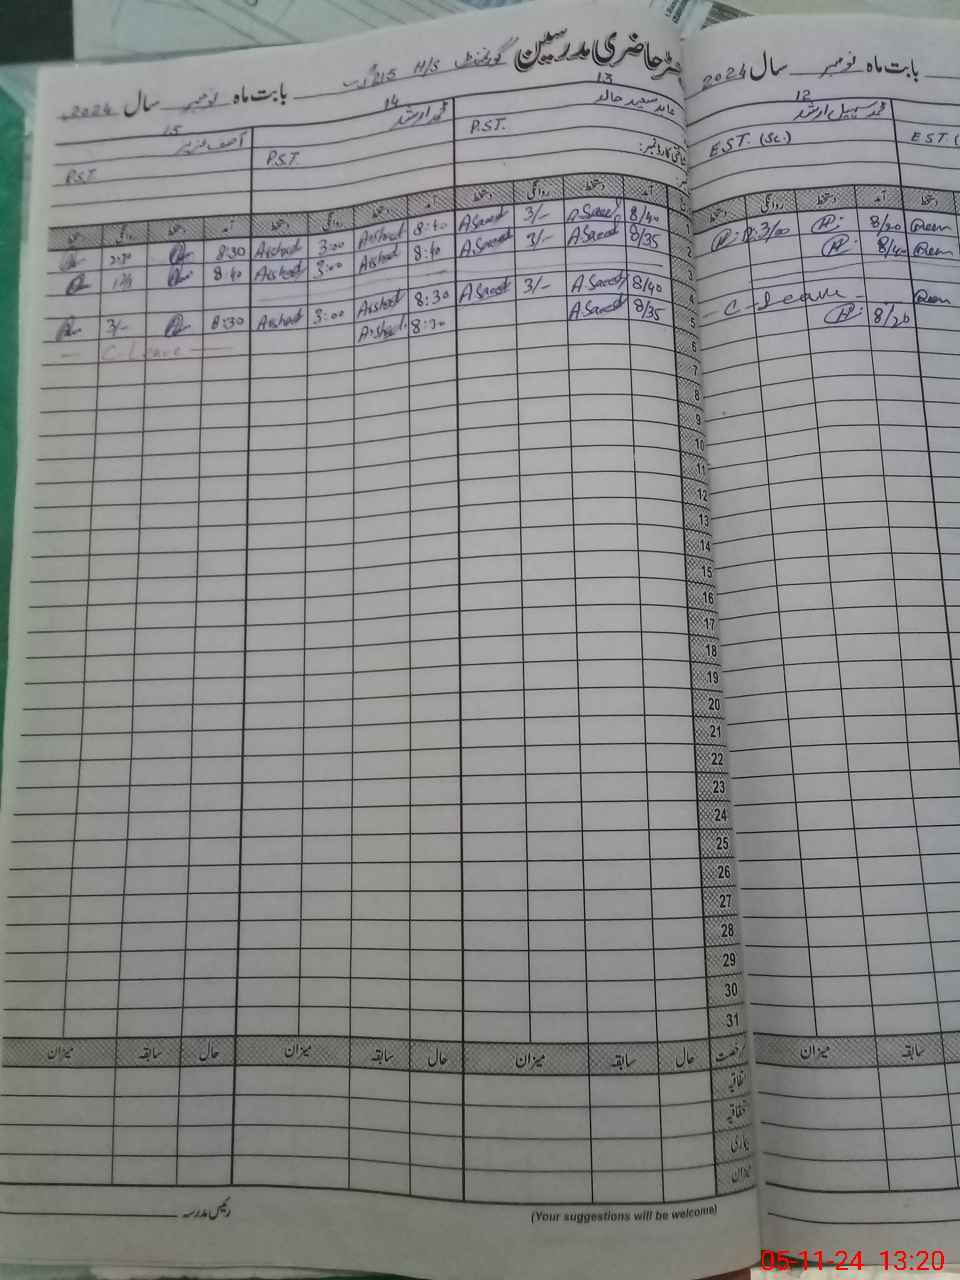 رجسٹر حاضری مدرسین گورنمنٹ H/S 215 گ ب بابت ماہ نومبر سال 2024ء
13 14 15
عابد سعید خالد محمد ارشد آصف عزیز
P.S.T. P.S.T. P.S.T.
شناختی کارڈ نمبر:
آمد دستخط روانگی دستخط آمد دستخط روانگی دستخط آمد دستخط روانگی دستخط
1 8/40 A Saeed 3/- A Saeed 8:40 Arshad 3:00 Arshad 8:30 2:30
2 8/35 A Saeed 3/- A Saeed 8:40 Arshad 3:00 Arshad 8:40
3
4 8/40 A Saeed 3/- A Saeed 8:30 Arshad 3:00 Arshad 8:30 3/-
5 8/35 A Saeed 8:30 Arshad — C-Leave —
6
7
8
9
10
11
12
13
14
15
16
17
18
19
20
21
22
23
24
25
26
27
28
29
30
31
رخصت حال سابقہ میزان حال سابقہ میزان حال سابقہ میزان
اتفاقیہ
بیماری
میزان
(Your suggestions will be welcome)
رئیس مدرسہ
بابت ماہ نومبر سال 2024
12
محمد سہیل ارشد
E.S.T. (Sc.) E.S.T (
آمد دستخط روانگی دستخط
8/20 3/00
8/40
— C-Leave —
8/20
سابقہ میزان
05-11-24 13:20